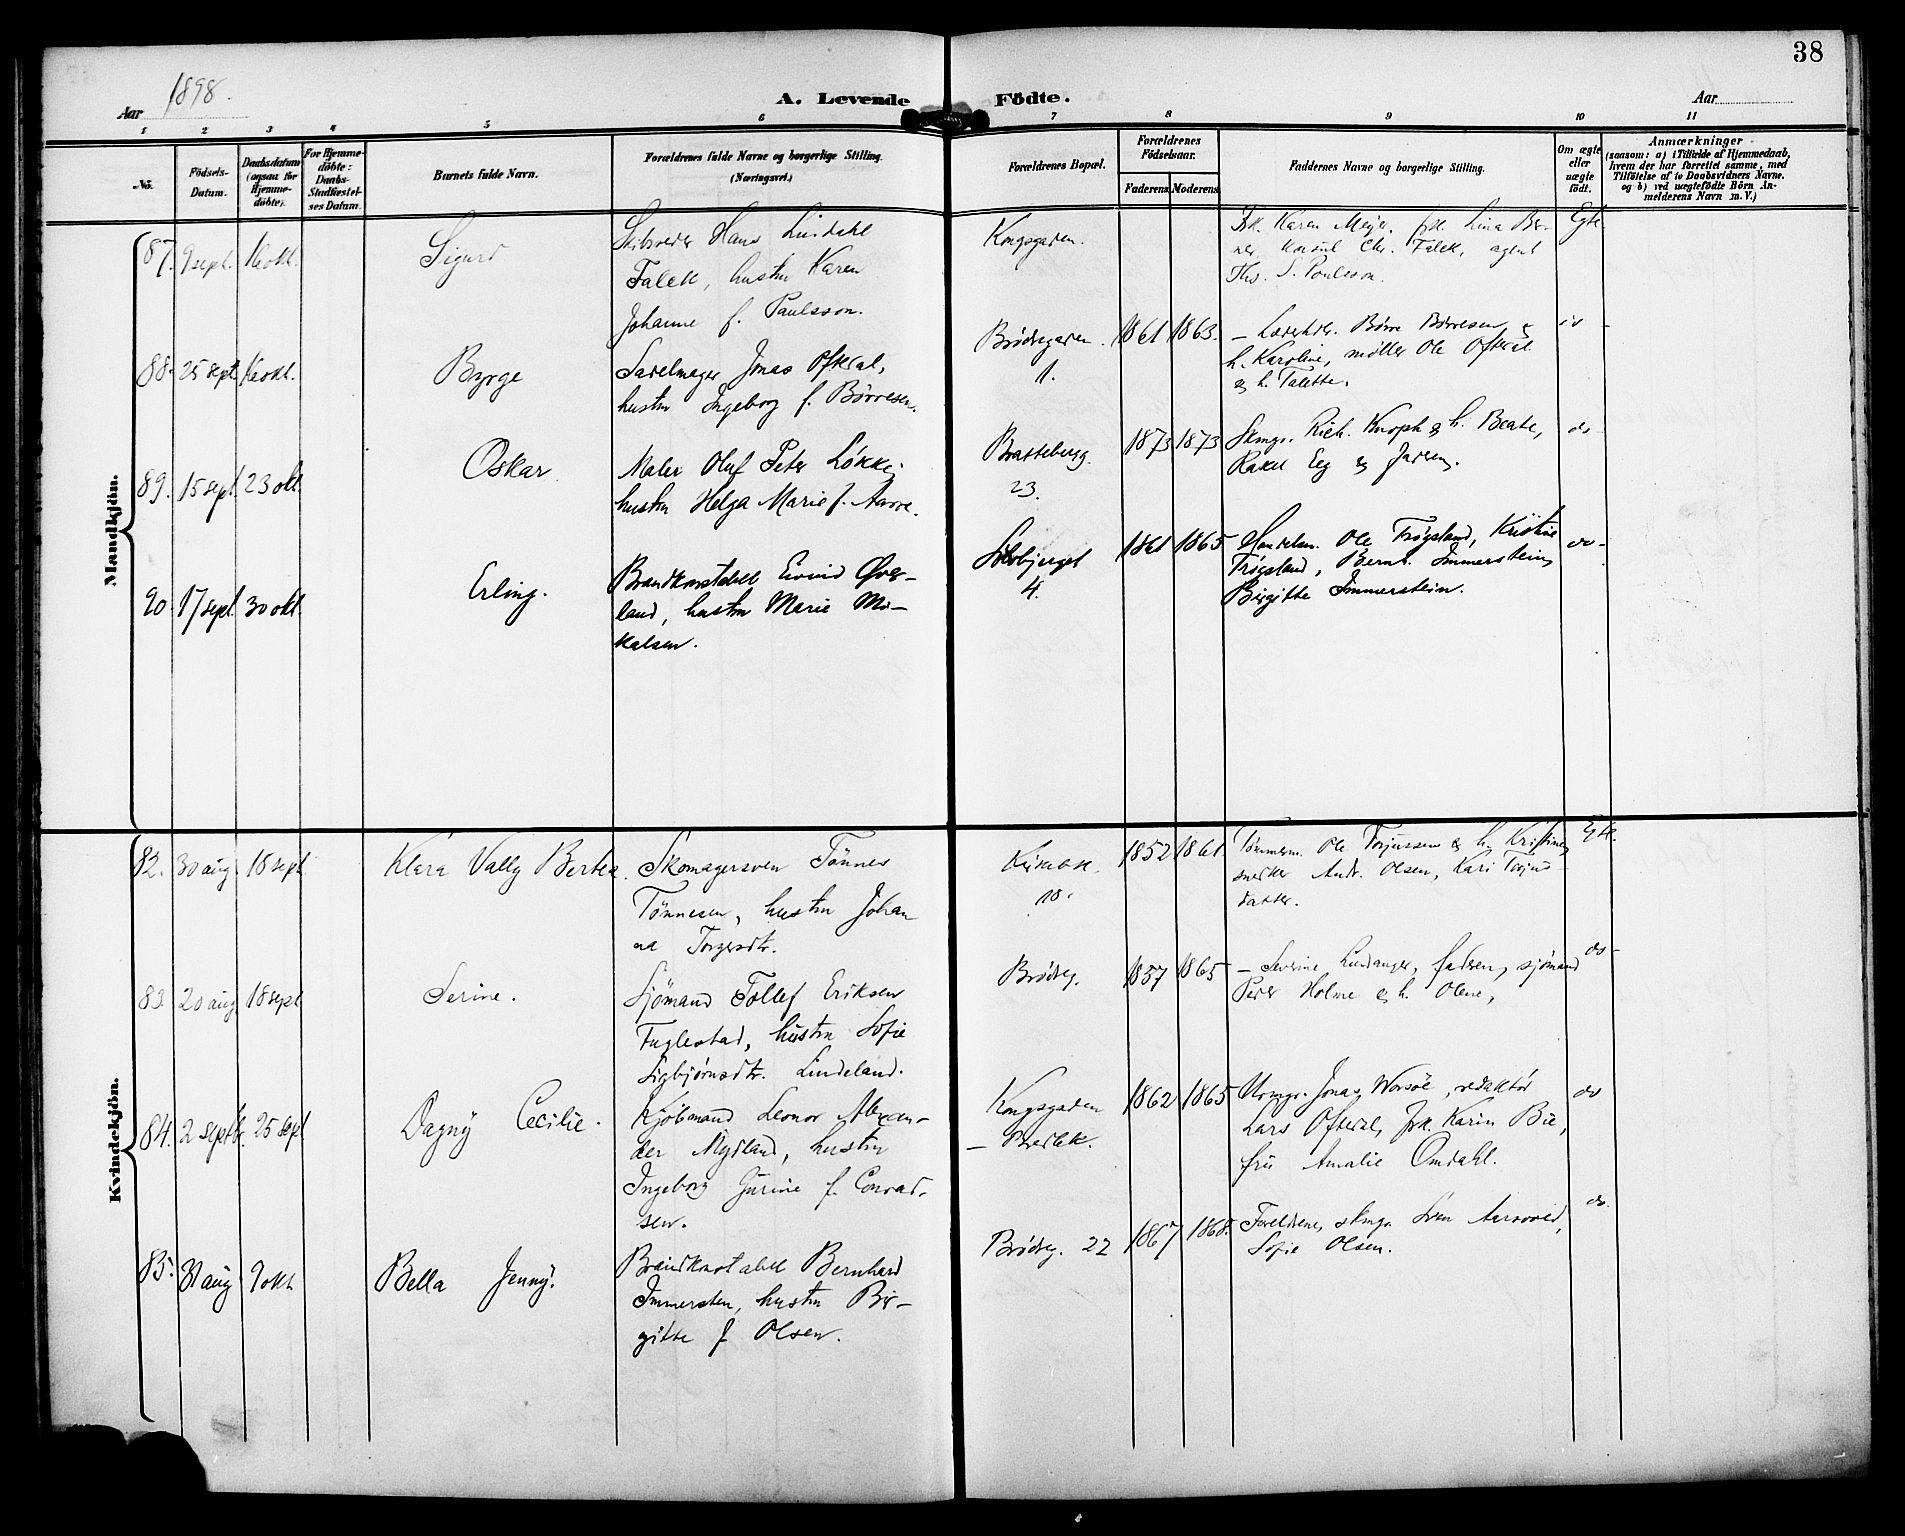 38
Aar 1898.
A. Levende Födte.
Aar
1 2 3 4 5 6 7 8 9 10 11
No.
Födsels-Datum.
Daabsdatum (ogsaa for Hjemme-döbte).
For Hjemme-döbte: Daabs-Stadfæstel-ses Datum.
Barnets fulde Navn.
Forældrenes fulde Navne og borgerlige Stilling. (Næringsvei.)
Forældrenes Bopæl.
Forældrenes Födselsaar.
Faderens Moderens
Faddernes Navne og borgerlige Stilling.
Om ægte eller uægte födt.
Anmærkninger
(saasom: a) i Tilfælde af Hjemmedaab,
hvem der har forrettet samme, med
Tilföielse af to Daabsvidners Navne.
og b) ved uægtefödte Börn An-
melderens Navn m. V.)
Mandkjön.
87. 9 sept. 16 okt. Sigurd
Skibsreder Hans Lindahl
Falck, hustru Karen
Johanne f. Paulsson.
Kongsgaden.
Frk. Karen Meyer, frk. Lina Ber-
ner, konsul Chr. Falck, agent
Ths. S. Poulsson.
Egte
88. 25 sept. 16 okt. Byrge
Sadelmager Jonas Oftedal,
hustru Ingeborg f. Børresen.
Brødregaden.
1.
1861 1863.
Børre Børresen &
h. Karoline, møller Ole Oftedal
& h. Talette.
do
89. 15 sept. 23 okt. Oskar
Maler Oluf Peter Løkke,
hustru Helga Marie f. Aarre.
Brattebergg.
23.
1873 1873
Skmgr. Rich. Knoph & h. Beate,
Rakel Eeg & Fadren.
do
90. 17 sept 30 okt Erling.
Brandkonstabel Eivind Øver-
land, hustru Marie Mi-
kalsen.
4.
1861 1865
Handelsm. Ole Frøysland, Kristine
Frøysland, Bernt. Immerstein,
Birgitte Immerstein.
do
Kvindekjön.
82. 30 aug 18 sept Klara Vally Bertea.
Skomagersven Tönnes
Tönnesen, hustru Johan
na Torgersdtr.
10.
1852 1861
Tømmerm. Ole Torjussen & h. Kristine,
snedker Andr. Olsen, Kari Torjus-
datter.
Egte.
83. 20 aug 18 sept Serine.
Sjömand Tollef Eriksen
Fuglestad, hustru Sofie
Sigbjørnsdtr. Lindeland.
Brødreg.
1857 1865
Severine Lindanger, fadren, sjömand
Peder Holme & h. Olene,
do
84. 2 septbr. 25 sept Dagny Cecilie.
Kjöbmand Leonor Alexan-
der Mydland, hustru
Ingeborg Gurine f. Conrad-
sen.
Kongsgaden
- Bredek.
1862 1865
Urmgr. Jonas Worsöe, redaktör
Lars Oftedal, Frk. Karin Bie,
fru Amalie Omdahl.
do
85. 31 aug 9 okt Bella Jenny.
Brandkonstabel Bernhard
Immersten, hustru Bir-
gitte f Olsen.
Brødreg. 22
1867 1868.
Foreldrene, skmgr. Sven Aarsvold,
Sofie Olsen.
do